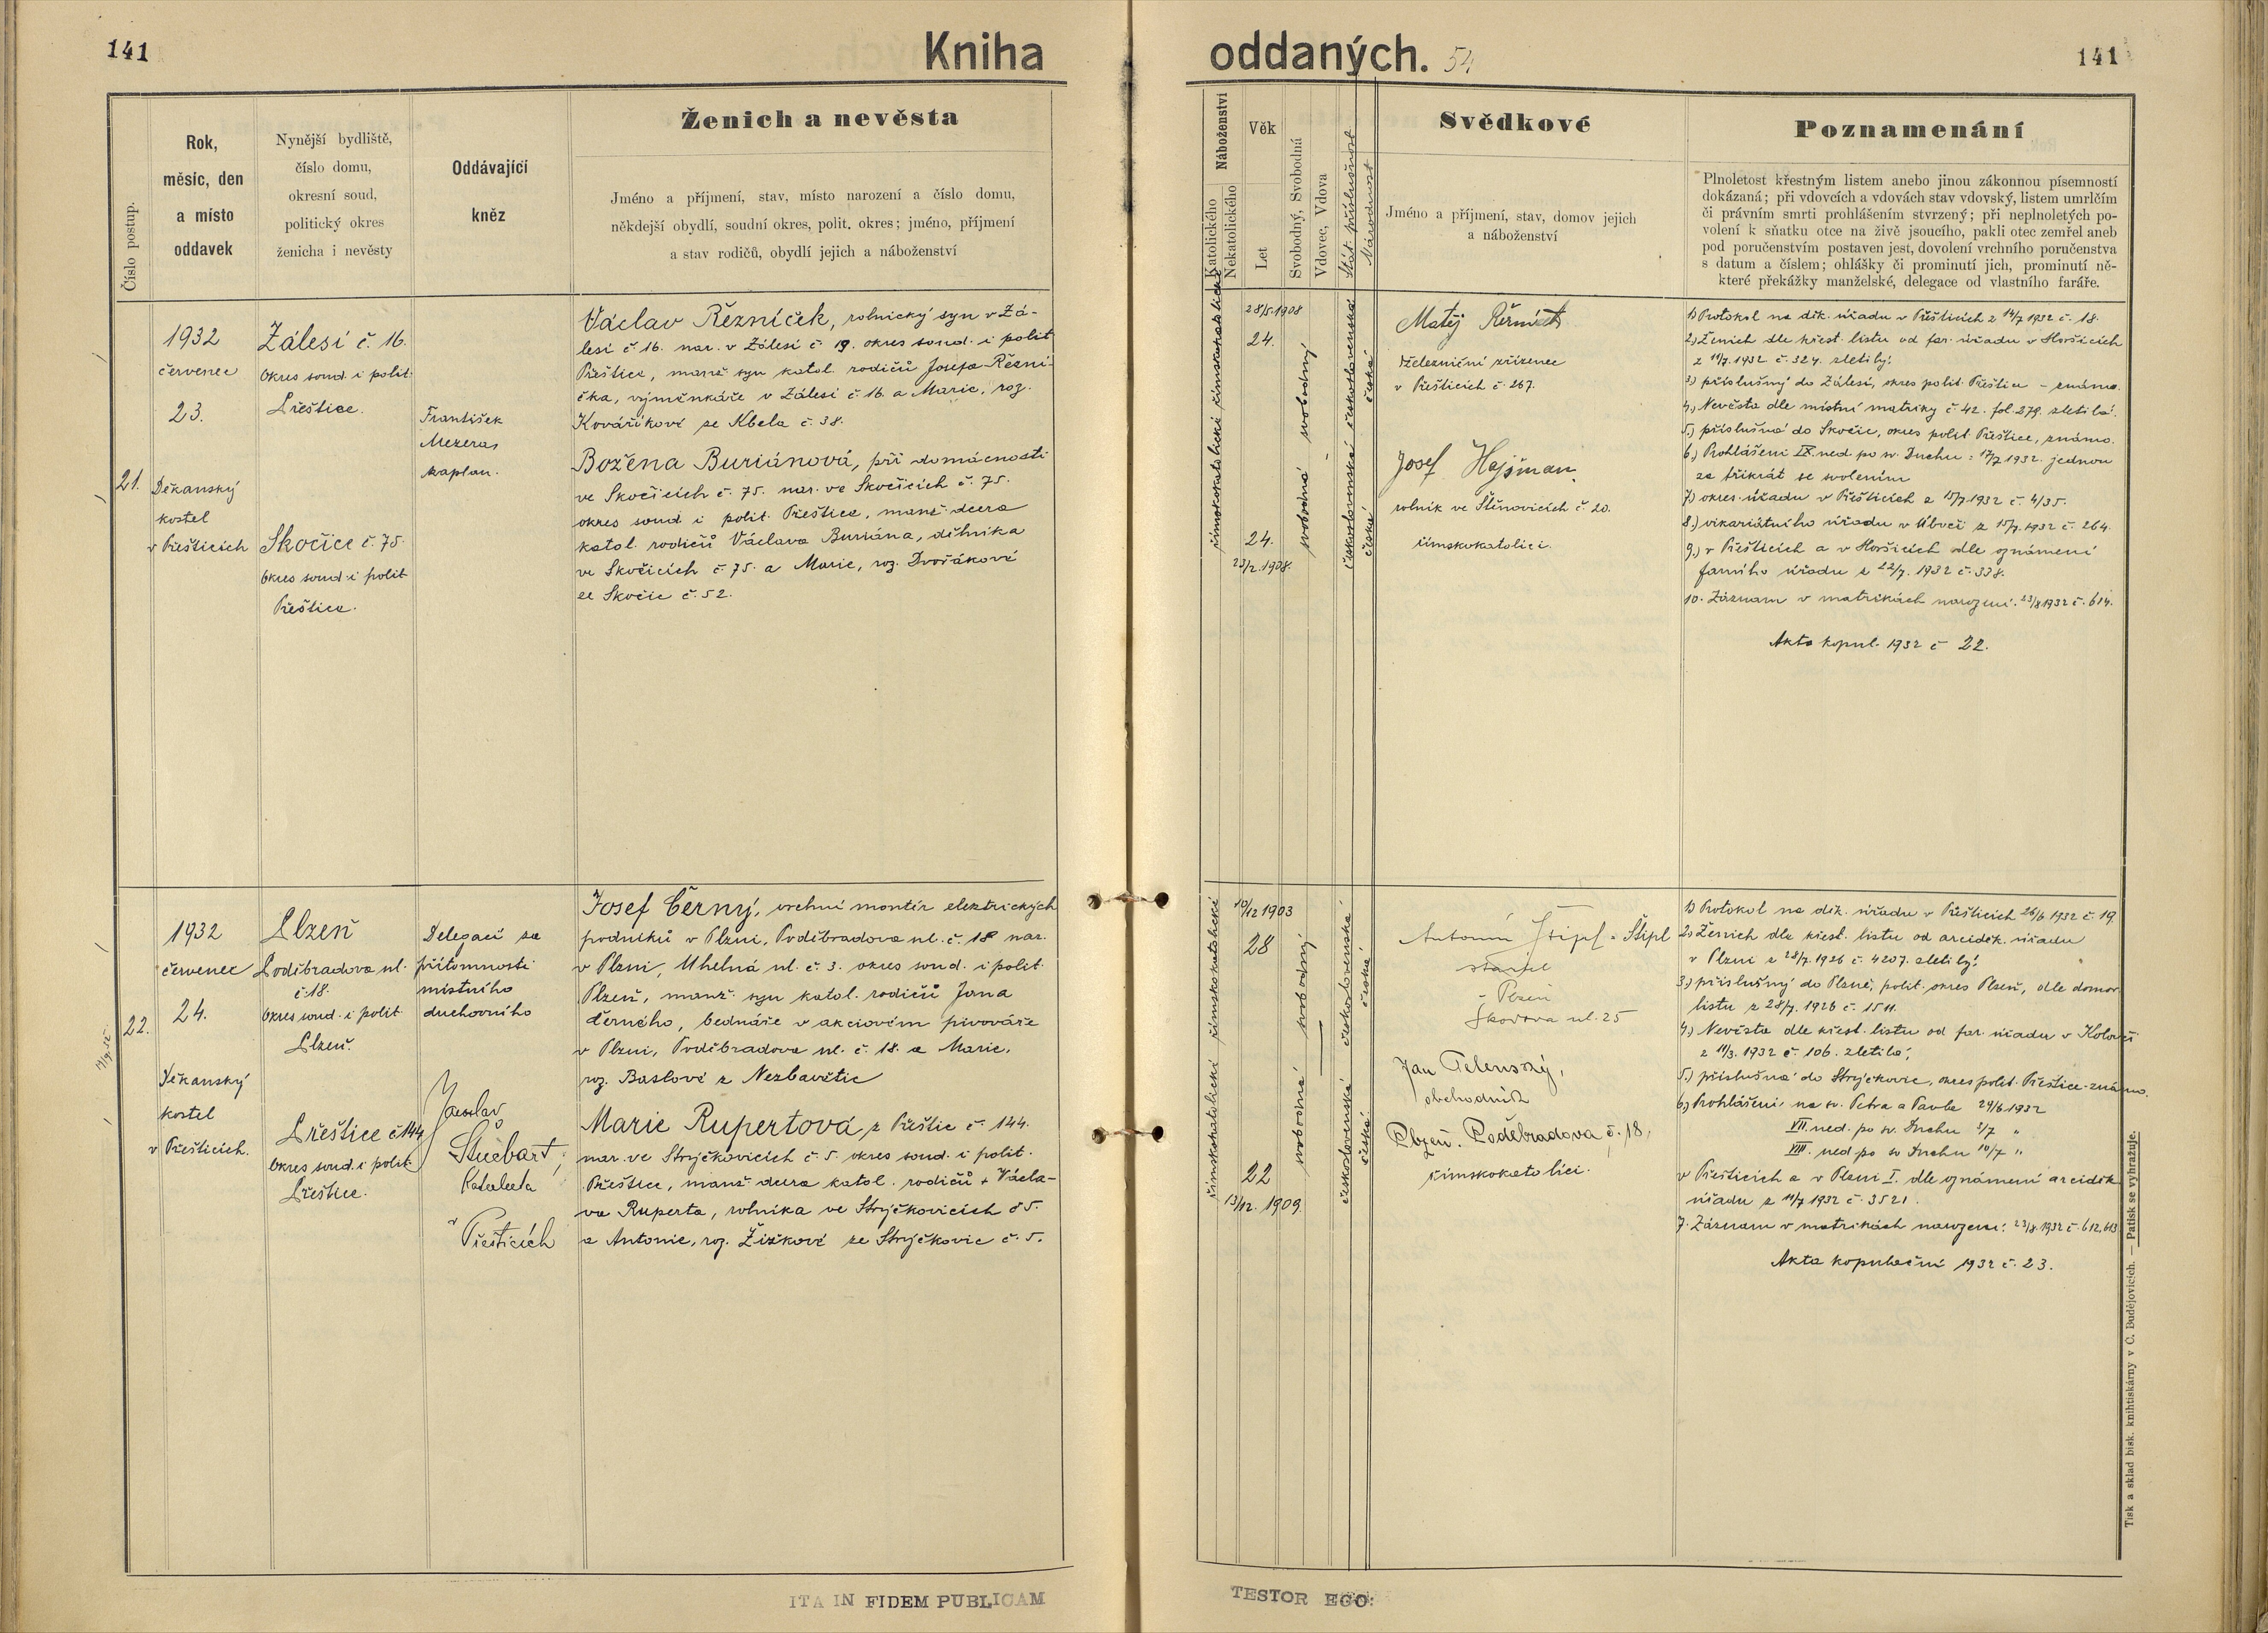 141
Kniha
oddaných.
54
141
Číslo postup.
Rok,
měsíc, den
a místo
oddavek
Nynější bydliště,
číslo domu,
okresní soud,
politický okres
ženicha i nevěsty
Oddávající
kněz
Ženich a nevěsta
Jméno a příjmení, stav, místo narození a číslo domu,
někdejší obydlí, soudní okres, polit. okres; jméno, příjmení
a stav rodičů, obydlí jejich a náboženství
Náboženství
Katolického
Nekatolického
Věk
Let
Svobodný, Svobodná
Vdovec, Vdova
Stát. příslušnost
Národnost
Svědkové
Jméno a příjmení, stav, domov jejich
a náboženství
Poznamenání
Plnoletost křestným listem anebo jinou zákonnou písemností
dokázaná; při vdovcích a vdovách stav vdovský, listem umrlčím
či právním smrti prohlášením stvrzený; při neplnoletých po-
volení k sňatku otce na živě jsoucího, pakli otec zemřel aneb
pod poručenstvím postaven jest, dovolení vrchního poručenstva
s datum a číslem; ohlášky či prominutí jich, prominutí ně-
které překážky manželské, delegace od vlastního faráře.
21.
1932
červenec
23.
Děkanský
kostel
v Přešticích
Zálesí č. 16.
Okres soud. i polit.
Přeštice.
Skočice č. 75.
Okres soud. i polit
Přeštice.
František
Mezera,
kaplan.
Václav Řezníček, rolnický syn v Zá-
lesí č. 16. nar. v Zálesí č. 19. okres soud. i polit
Přeštice, manž. syn katol. rodičů Josefa Řezní-
čka, výměnkáře v Zálesí č. 16. a Marie, roz.
Kováříkové ze Kbela č. 38.
Božena Buriánová, při domácnosti
ve Skočicích č. 75. nar. ve Skočicích č. 75.
okres soud i polit. Přeštice, manž. dcera
katol. rodičů Václava Buriána, dělníka
ve Skočicích č. 75. a Marie, roz. Dvořákové
ze Skočic č. 52.
římskokatolická římskokatolické
28/5.1908
24.
24.
23/2.1908.
svobodná svobodný
československá československá
česká česká
Matěj
železniční zřízenec
v Přešticích č. 267.
Josef Hajšman,
rolník ve Štěnovicích č. 20.
římskokatolíci.
1) Protokol na děk. úřadu v Přešticích z 14/7 1932 č. 18.
2.) Ženich dle křest. listu od far. úřadu v Horšicích
z 11/7. 1932 č. 324. zletilý.
3.) příslušný do Zálesí, okres polit. Přeštice – známo.
4.) Nevěsta dle místní matriky č. 42. fol. 279. zletilá.
5.) příslušná do Skočic, okres polit. Přeštice, známo.
6.) Prohlášeni IX. ned. po sv. Duchu: 17/7 1932. jednou
za třikrát se svolením
7.) okres. úřadu v Přešticích z 15/7.1932 č. 4/35.
8.) vikariátního úřadu v Úboči z 15/7.1932 č. 264.
9.) v Přešticích a v Horšicích dle oznámení
farního úřadu z 22/7. 1932 č. 338.
10. Záznam v matrikách narození. 23/8 1932 č. 614.
Akta kopul. 1932 č 22.
22.
1932
červenec
24.
Děkanský
kostel
v Přešticích.
Plzeň
Poděbradova ul.
č. 18.
Okres soud. i polit
Plzeň.
Přeštice č. 144
Okres soud. i polit.
Přeštice.
Delegací za
přítomnosti
místního
duchovního
Jaroslav
v
Přešticích
Josef Černý, vrchní montér elektrických
podniků v Plzni, Poděbradova ul. č. 18 nar.
v Plzni, Uhelná ul. č. 3. okres soud. i polit.
Plzeň, manž. syn katol. rodičů Jana
Černého, bednáře v akciovém pivováře
v Plzni, Poděbradova ul. č. 18. a Marie,
roz. Baslové z Nezbavětic
Marie Rupertová z Přeštic č. 144.
nar. ve Strýčkovicích č. 5. okres soud. i polit.
Přeštice, manž. dcera katol. rodičů + Václa-
va Ruperta, rolníka ve Strýčkovicích č 5.
a Antonie, roz. Žižkové ze Strýčkovic č. 5.
římskokatolická římskokatolické
10/12 1903
28
22
13/12. 1909.
svobodná svobodný
československá československá
česká česká
Antonín Štípl = Štípl
Plzeň
Škodova ul. 25
Jan Telenský,
obchodník
Plzeň. Poděbradova č. 18,
římskokatolíci.
1) Protokol na děk. úřadu v Přešticích 26/6 1932 č. 19
2.) Ženich dle křest. listu od arciděk. úřadu
v Plzni z 28/7. 1926 č. 4207. zletilý.
3.) příslušný do Plzně, polit. okres Plzeň, dle domov.
listu z 28/7. 1926 č. 1511.
4.) Nevěsta dle křest. listu od far. úřadu v Kolovči
z 11/3. 1932 č. 106. zletilá,
5.) příslušná do Strýčkovic, okres polit. Přeštice-známo.
6.) Prohlášeni: na sv. Petra a Pavla 29/6.1932
VII. ned. po sv. Duchu 3/7 "
VIII. ned. po sv Duchu 10/7 "
v Přešticích a v Plzni I. dle oznámení arciděk
úřadu z 11/7 1932 č. 3521.
7. Záznam v matrikách narození: 23/8.1932 č. 612,613
Akta kopulační 1932 č. 23.
Tisk a sklad bisk. knihtiskárny v Č. Budějovicích. — Patisk se vyhražuje.
ITA IN FIDEM PUBLICAM
TESTOR EGO: